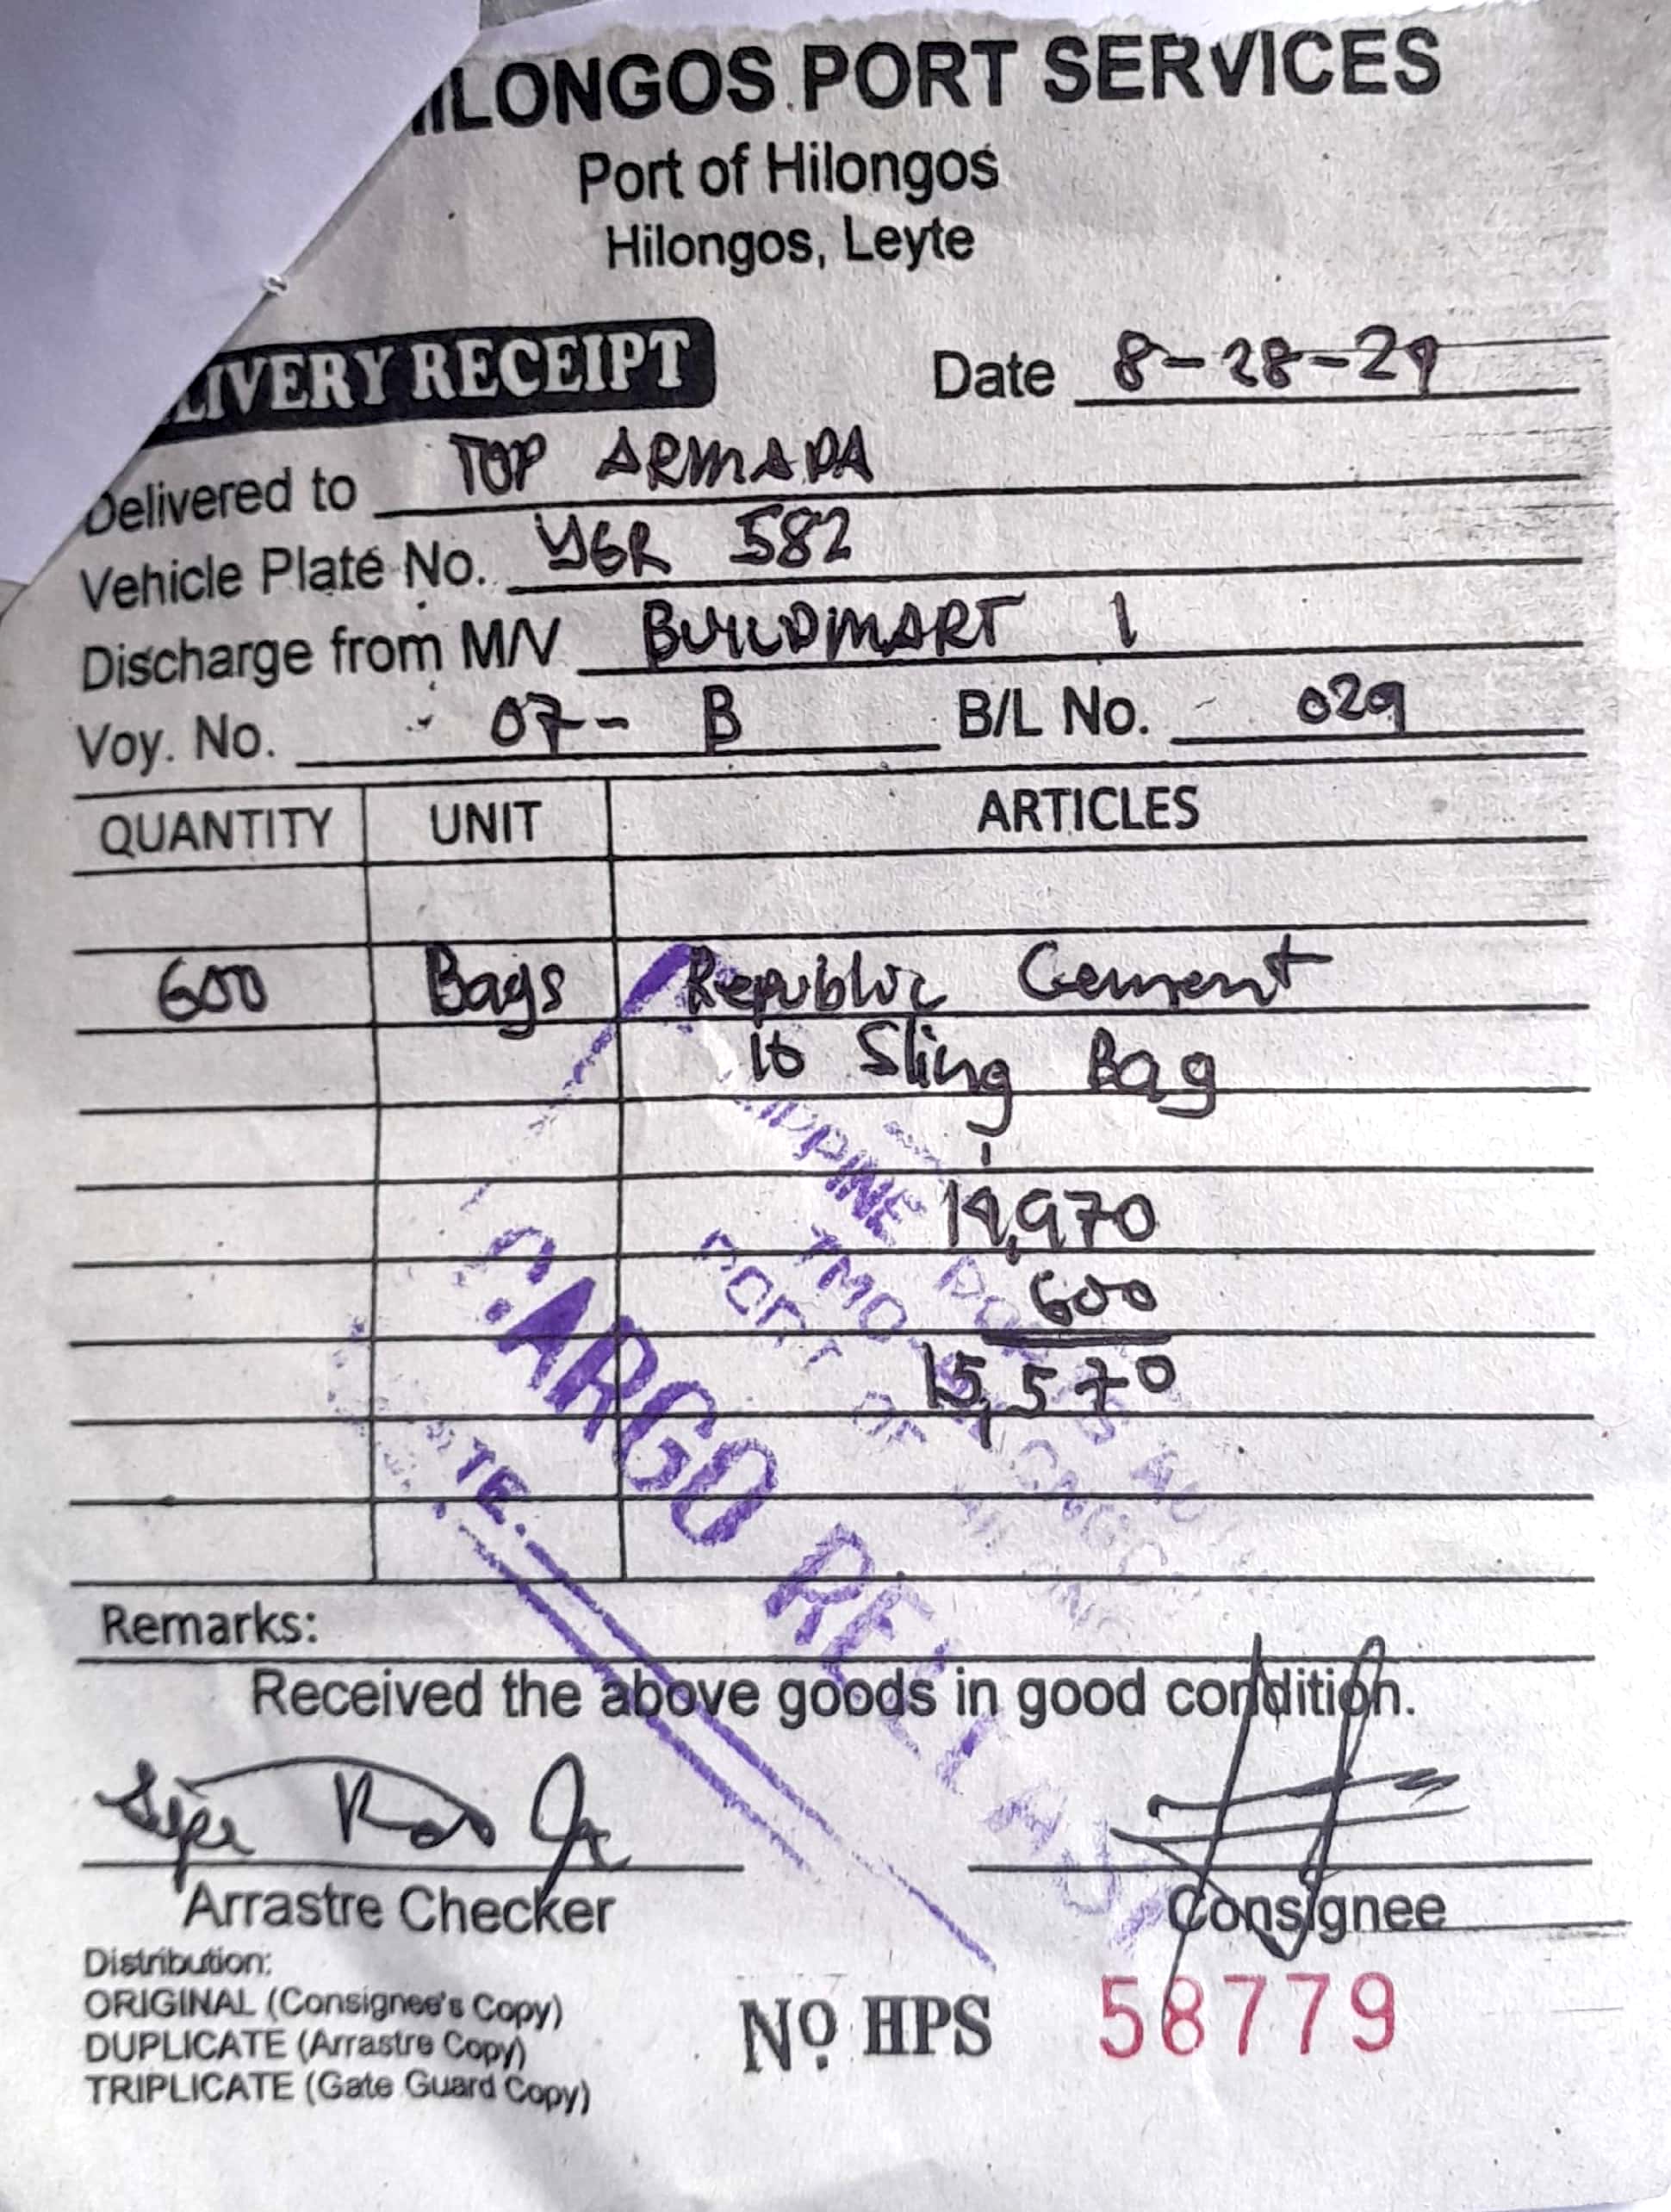 ILONGOS PORT SERVICES
Port of Hilongos
Hilongos, Leyte
LIVERY RECEIPT
Date 8-28-29
Delivered to TOP ARMADA
Vehicle Plate No. YGR 582
Discharge from M/V BUILDMART 1
Voy. No. 07- B B/L No. 029
QUANTITY UNIT ARTICLES
600 Bags Republic Cement
10 Sling Bag
14,970
600
15,570
CARGO RELEASE
PORT OF
Remarks:
Received the above goods in good condition.
Arrastre Checker Consignee
Distribution:
ORIGINAL (Consignee's Copy)
DUPLICATE (Arrastre Copy)
TRIPLICATE (Gate Guard Copy)
Nº HPS 58779